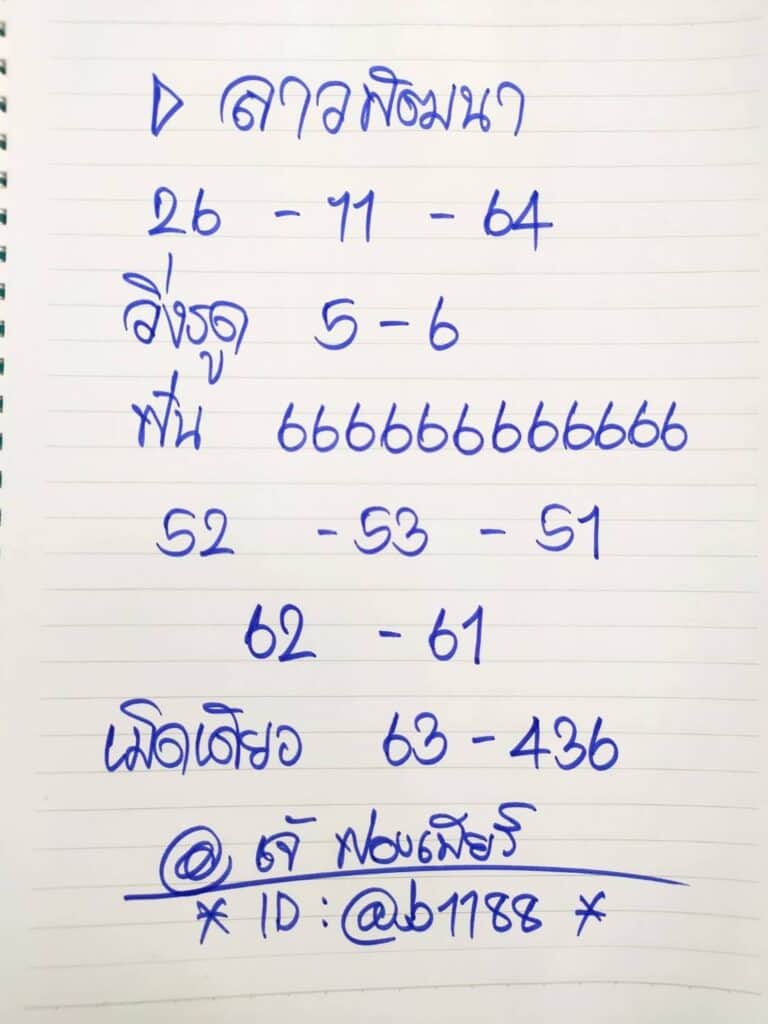 ลาวพัฒนา
26 - 11 - 64
วิ่งรูด 5 - 6
ฟัน 666666666666
52 - 53 - 51
62 - 61
เม็ดเดียว 63 - 436
@ เจ้ ฟองเบียร์
* ID : @ub1188 *